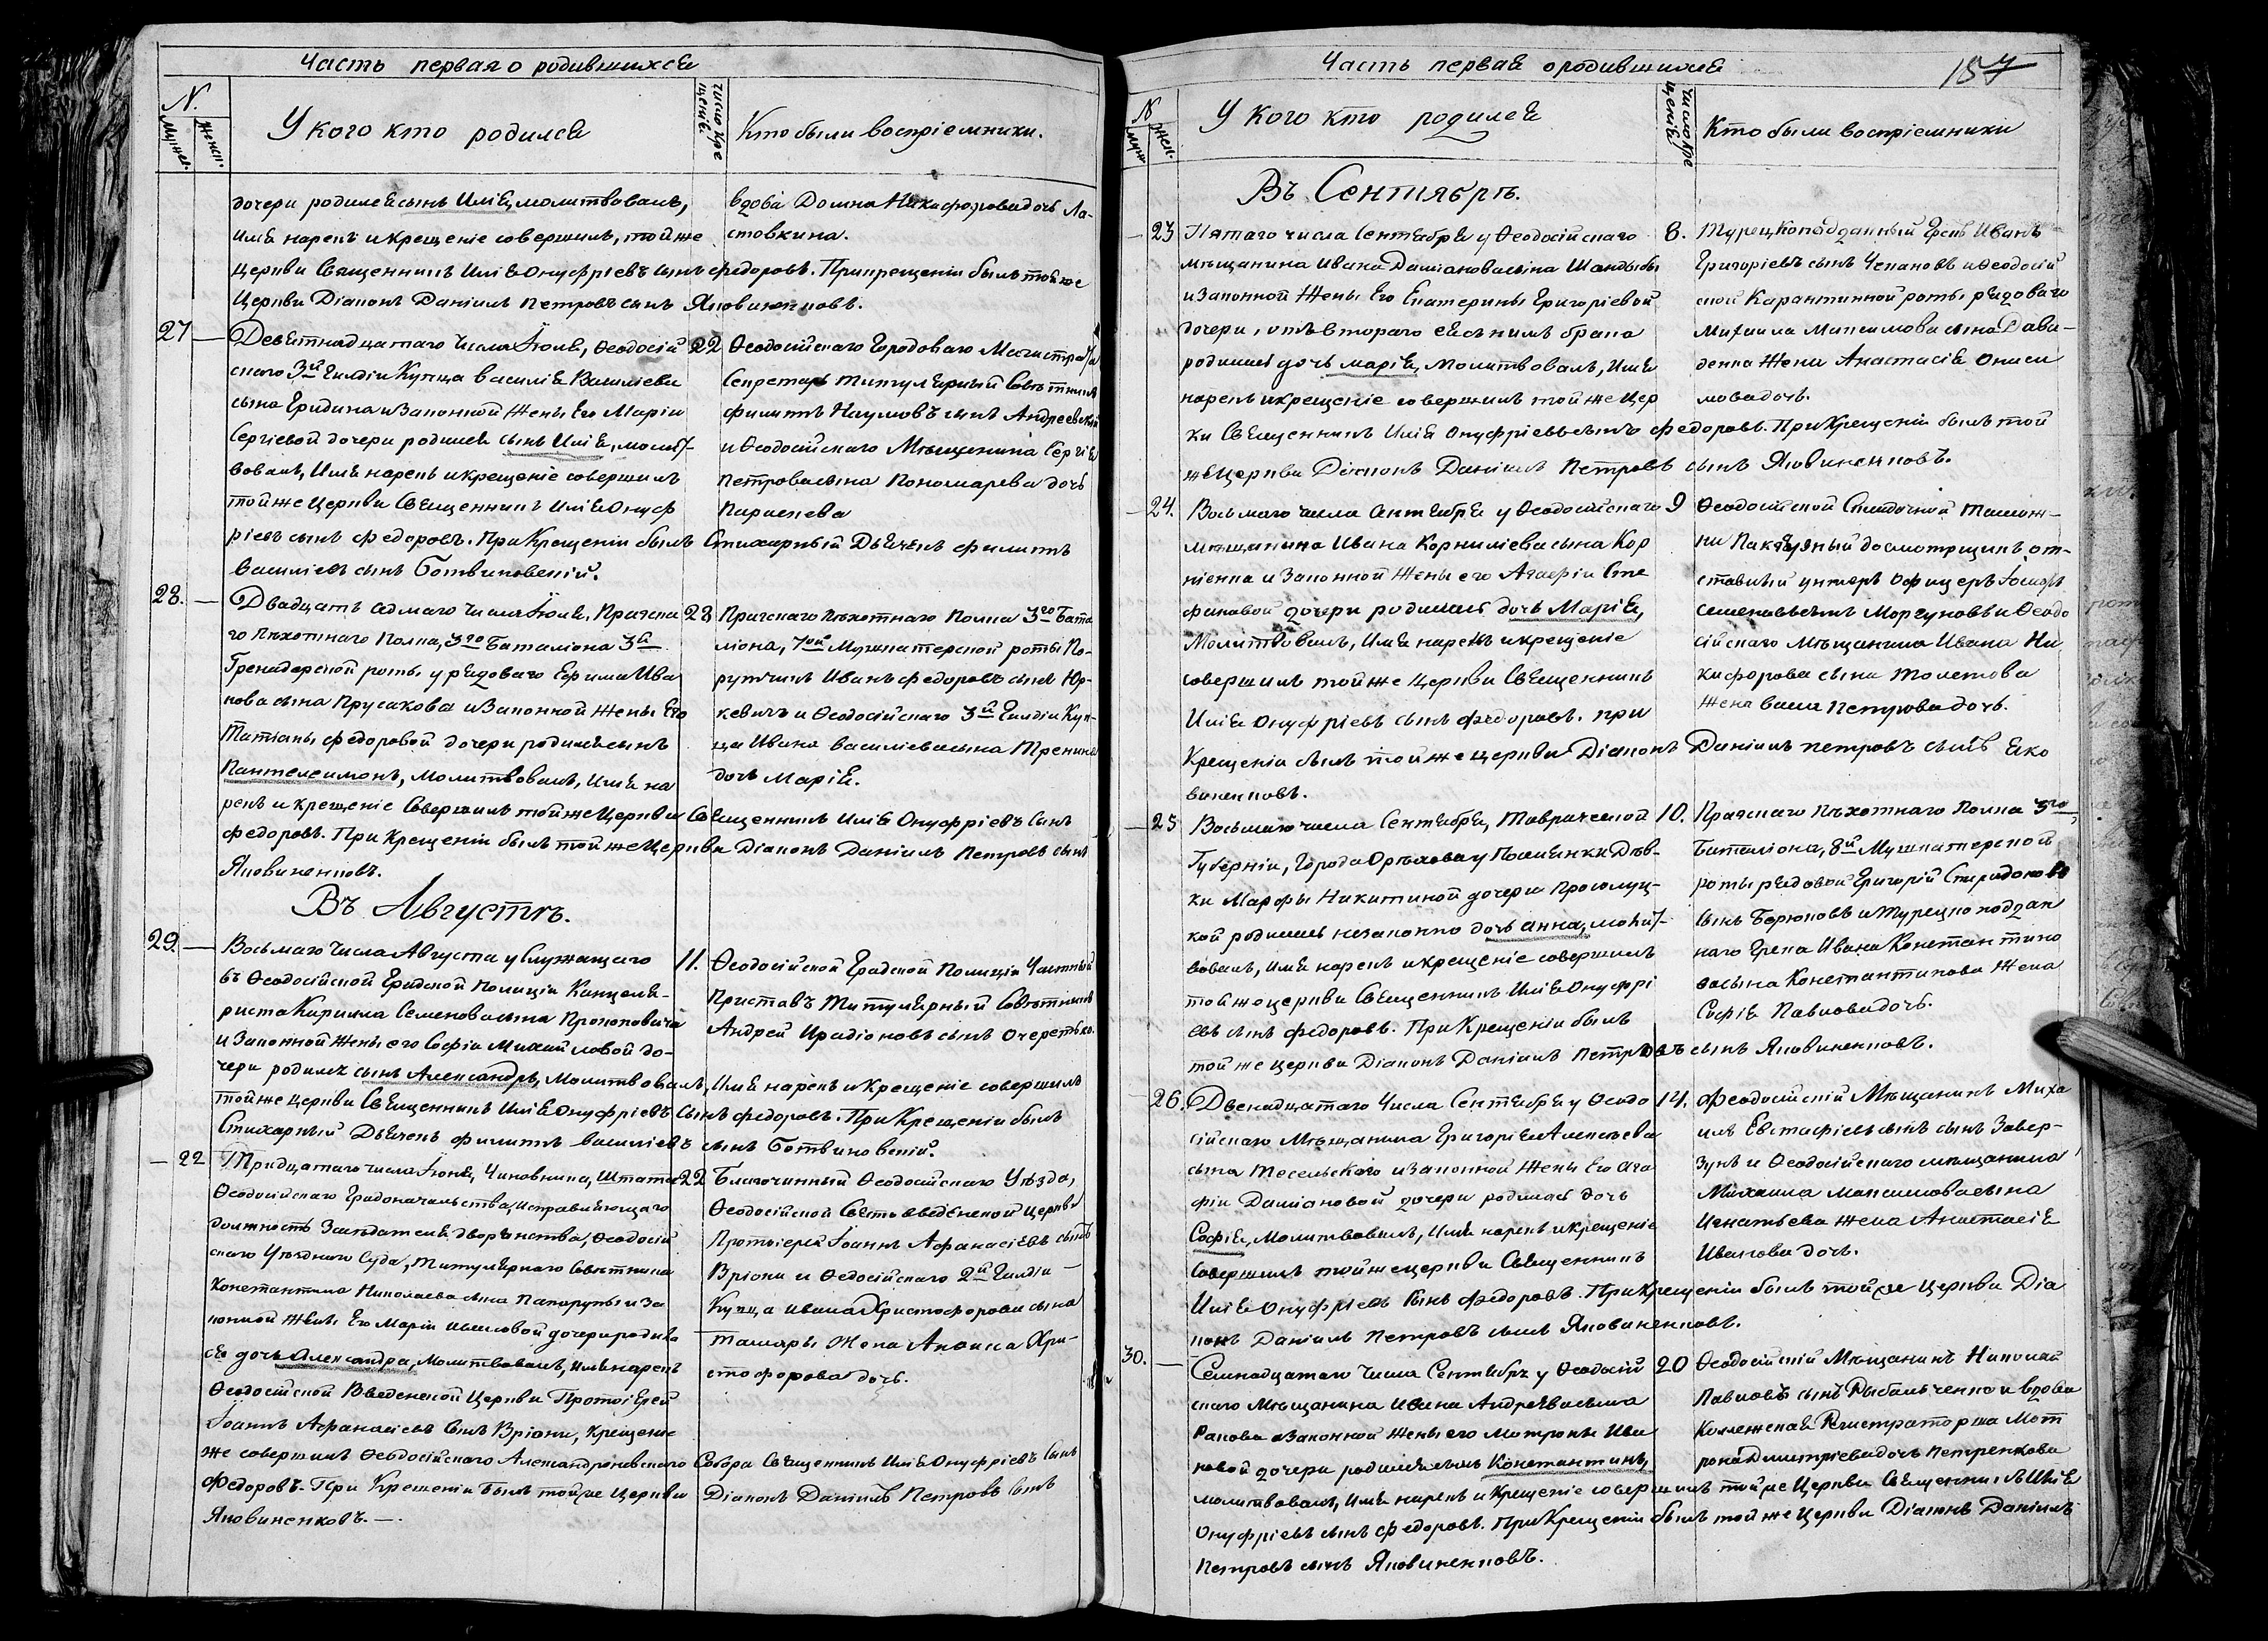 Часть первая о родившихся
N.
Мужес.
Женс.
У кого кто родился
число кре
щенiя.
Кто были воспрiемники.
дочери родился сынъ Илiя, молитвовалъ,
имя нарекъ и крещенiе совершилъ, той же
Церкви Священникъ Илiя Онуфрiевъ сынъ Федоровъ. При крещенiи былъ той же
Церкви Дiаконъ Данiилъ Петровъ сынъ Яковиненковъ.
вдова Домна Никифорова дочь Ла-
стовкина.
27
Девятнадцатаго числа Iюля, Ѳеодосiй
скаго 3й Гилдiи Купца Василiя Василiева
сына Гридина и Законной жены Его Марiи
Сергiевой дочери родился сынъ Илiя, молит-
вовалъ, Имя нарекъ и крещенiе совершилъ
той же Церкви Священникъ Илiя Онуф
рiевъ сынъ Федоровъ. При Крещенiи былъ Стихарный Дьячекъ Филиппъ
Василiевъ сынъ Ботвиновскiй.
22
Ѳеодосiйскаго Городоваго Магистрата
Секретарь Титулярный Совѣтникъ
Филиппъ Наумовъ сынъ Андреевскiй
и Ѳеодосiйскаго Мѣщанина Сергiя
Петрова сына Пономарева дочь
Параскева
28.
Двадцать седмаго числа Iюля, Пражска
го Пѣхотнаго Полка, 3го Баталiона 3й
Гренадерской роты у рядоваго Ефима Ива
нова сына Прусакова и Законной жены Его
Татiаны Федоровой дочери родился сынъ
Пантелеимонъ, молитвовалъ, Имя на
рекъ и крещенiе Совершилъ той же Церкви Священникъ Илiя Онуфрiевъ Сынъ
Федоровъ. При Крещенiи былъ той же Церкви Дiаконъ Данiилъ Петровъ сынъ
Яковиненковъ.
28
Пражскаго Пѣхотнаго Полка 3го Бата
лiона, 7ой Мушкатерской роты По-
рутчикъ Иванъ Федоровъ сынъ Юр-
кевичъ и Ѳеодосiйскаго 3й Гилдiи Куп-
ца Ивана Василiева сына Тренина
дочь Марiя.
Въ Августѣ.
29.
Восьмаго числа Августа у Служащаго
въ Ѳеодосiйской Градской Полицiи Канцеля-
риста Кирилла Семенова сына Прокоповича
и Законной жены его Софiи Михайловой до-
чери родился сынъ Александръ, Молитвовалъ, Имя нарекъ и Крещенiе совершилъ
той же Церкви Священникъ Илiя Онуфрiевъ Сынъ Федоровъ. При Крещенiи былъ
Стихарный Дьячекъ Филиппъ Василiевъ сынъ Ботвиновскiй.
11.
Ѳеодосiйской Градской Полицiи Частный
Приставъ Титулярный Совѣтникъ
Андрей Ирадiоновъ сынъ Очеретько.
22
Тридцатаго числа Iюня, Чиновника, Штата
Ѳеодосiйскаго Градоначальства, исправляющаго
должность Засѣдателя дворянства, Ѳеодосiй
скаго Уѣзднаго Суда, Титулярнаго Совѣтника
Константина Николаева сына Папарупы и За
конной жены Его Марiи дочери родила
ся дочь Александра, Молитвовалъ, Имя нарекъ
Ѳеодосiйской Введенской Церкви Протоiерей
Iоаннъ Афанасiевъ Сынъ Врiони, Крещенiе
же совершилъ Ѳеодосiйскаго Александроневскаго Собора Священникъ Илiя Онуфрiевъ Сынъ
Федоровъ. При Крещенiи былъ той же Церкви Дiаконъ Данiилъ Петровъ Сынъ
Яковиненковъ.—.
22
Благочинный Ѳеодосiйскаго Уѣзда,
Ѳеодосiйской Свято введенской церкви
Протоiерей Iоаннъ Афанасiевъ сынъ
Врiони и Ѳеодосiйскаго 2й Гилдiи
Купца Ивана Христофорова сына
Тамары Жена Анна Хри-
стофорова дочь.
Часть первая о родившихся
157
N
Муж.
Жен.
У Кого кто родился
число кре
щенiя
Кто были воспрiемники
Въ Сентябрѣ.
23
Пятаго числа Сентября у Ѳеодосiйскаго
мѣщанина Ивана Дамiанова сына Шандыбы
и Законной жены Его Екатерины Григорiевой
дочери, отъ втораго ея съ нимъ брака
родилась дочь Марiя, молитвовалъ, Имя
нарекъ и крещенiе совершилъ той же Цер
кви Священникъ Илiя Онуфрiевъ сынъ Федоровъ. При Крещенiи былъ той
же Церкви Дiаконъ Данiилъ Петровъ сынъ Яковиненковъ.
8.
Турецкоподданный Грекъ Иванъ
Григорiевъ сынъ Чепановъ и Ѳеодосiй
ской Карантинной роты рядоваго
Михаила Максимова сына Дави-
денка Жена Анастасiя Ониси
мова дочь.
24.
Восьмаго числа Сентября у Ѳеодосiйскаго
мѣщанина Ивана Корнилiева сына Кор
нiенка и Законной жены его Агафiи Сте
фановой дочери родилась дочь Марiя,
Молитвовалъ, Имя нарекъ и крещенiе
совершилъ той же Церкви Священникъ
Илiя Онуфрiевъ сынъ Федоровъ. При
Крещенiи былъ той же церкви Дiаконъ Данiилъ Петровъ сынъ Яко
виненковъ.
9
Ѳеодосiйской Складочной Таможж-
ни Пакгаузный досмотрщикъ от-
ставный унтеръ Офицеръ Iосифъ
Семеновъ сынъ Моргуновъ и Ѳеодо
сiйскаго Мѣщанина Ивана Ни
кифорова сына Толстова
Жена Васса Петрова дочь.
25
Восьмаго числа Сентября, Таврической
Губернiи, Города Орѣхова у Поселянки Дѣв-
ки Марфы Никитиной дочери
кой родилась незаконно дочь Анна, молит-
вовалъ, Имя нарекъ и крещенiе совершилъ
той же церкви Священникъ Илiя Онуфрi
евъ сынъ Федоровъ. При Крещенiи былъ
той же церкви Дiаконъ Данiилъ Петровъ сынъ Яковиненковъ.
10.
Пражскаго Пѣхотнаго Полка 3го
Баталiона, 8й Мушкатерской
роты рядовой Григорiй Спиридоновъ
сынъ Бирюковъ и Турецкоподдан
наго Грека Ивана Константино
ва сына Константинова Жена
Софiя Павлова дочь.
26.
Двенадцатаго Числа Сентября у Ѳеодо
сiйскаго Мѣщанина Григорiя Алексѣева
сына Тесельскаго и Законной жены Его Ага
фiи Дамiановой дочери родилась дочь
Софiя, Молитвовалъ, Имя нарекъ и крещенiе
Совершилъ той же церкви Священникъ
Илiя Онуфрiевъ Сынъ Федоровъ. При Крещенiи былъ той же Церкви Дiа
конъ Данiилъ Петровъ сынъ Яковиненковъ.
14.
Феодосiйскiй Мѣщанинъ Миха
илъ Евстафiевъ сынъ сынъ Завер-
зунъ и Ѳеодосiйскаго мѣщанина
Михаила Максимова сына
Игнатьева жена Анастасiя
Иванова дочь.
30.
Семнадцатаго Числа Сентября у Ѳеодосiй
скаго Мѣщанина Ивана Андреева сына
Ракова и Законной жены его Матроны Ива
новой дочери родился сынъ Константинъ,
молитвовалъ, Имя нарекъ и Крещенiе совершилъ той же Церкви Священникъ Илiя
Онуфрiевъ сынъ Федоровъ. При Крещенiи былъ той же Церкви Дiаконъ Данiилъ
Петровъ сынъ Яковиненковъ.
20
Ѳеодосiйскiй Мѣщанинъ Николай
Павловъ сынъ Рыбальченко и вдова
Коллежская Регистраторша Мот
рона Дмитрiева дочь Петренкова